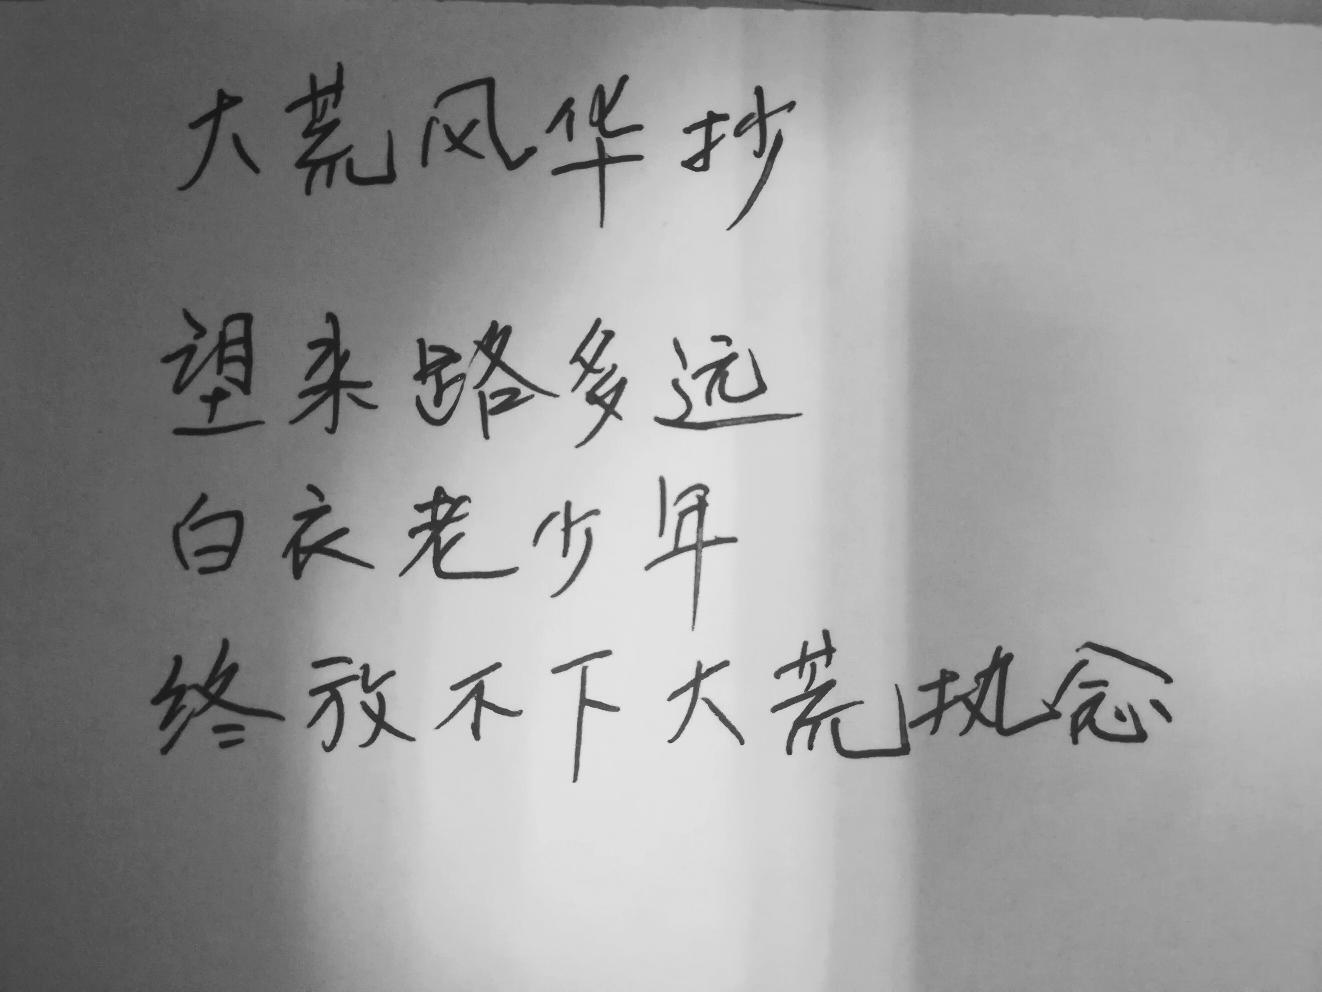 大荒风华抄
望来路多远
白衣老少年
终放不下大荒执念